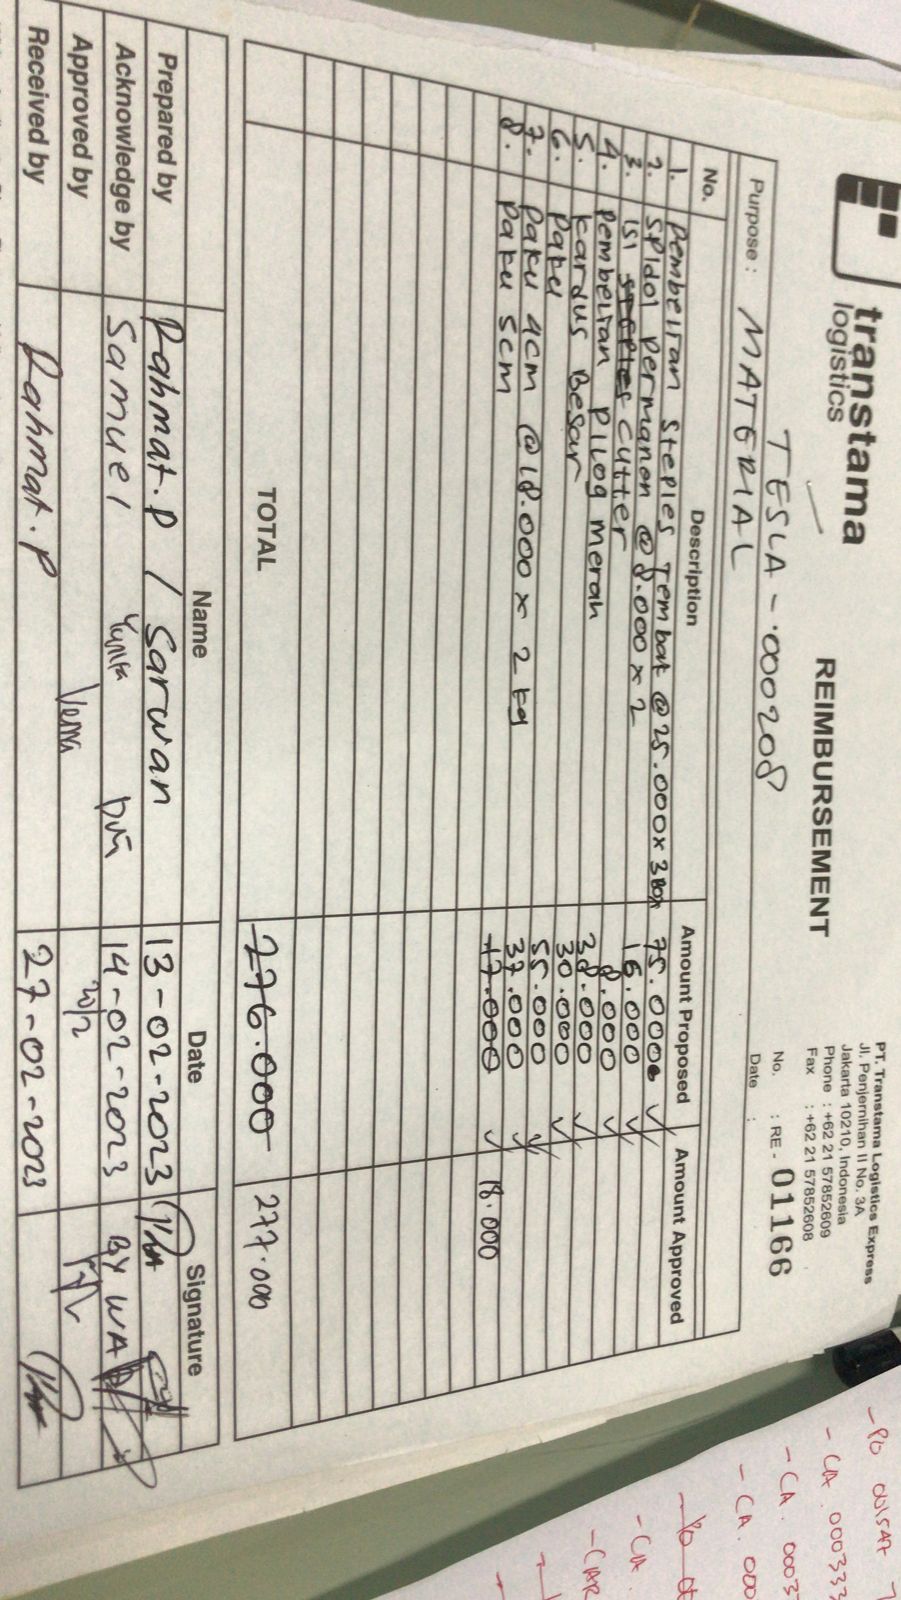 transtama
logistics
REIMBURSEMENT
PT. Transtama Logistics Express
Jl. Penjernihan II No. 3A
Jakarta 10210, Indonesia
Phone : +62 21 57852609
Fax : +62 21 57852608
No. : RE - 01166
Date :
TESLA - 000208
Purpose : MATERIAL
No. Description Amount Proposed Amount Approved
1. Pembelian Steples Tembak @25.000x3 Box 75.000
2. Spidol Permanen @8.000x2 16.000
3. isi steples cutter 8.000
4. Pembelian Pilog merah 38.000
5. Kardus Besar 30.000
6. Paku 55.000
7. Paku 4cm @18.000 x 2 kg 37.000
8. Paku 5cm 17.000 18.000
TOTAL 276.000 277.000
Name Date Signature
Prepared by Rahmat.P / Sarwan 13-02-2023
Acknowledge by Samuel 14-02-2023 BY WA
Approved by 20/2
Received by Rahmat.P 27-02-2023
- PO 001547
- CA. 000333
- CA. 0003
- CA. 000
- CA.